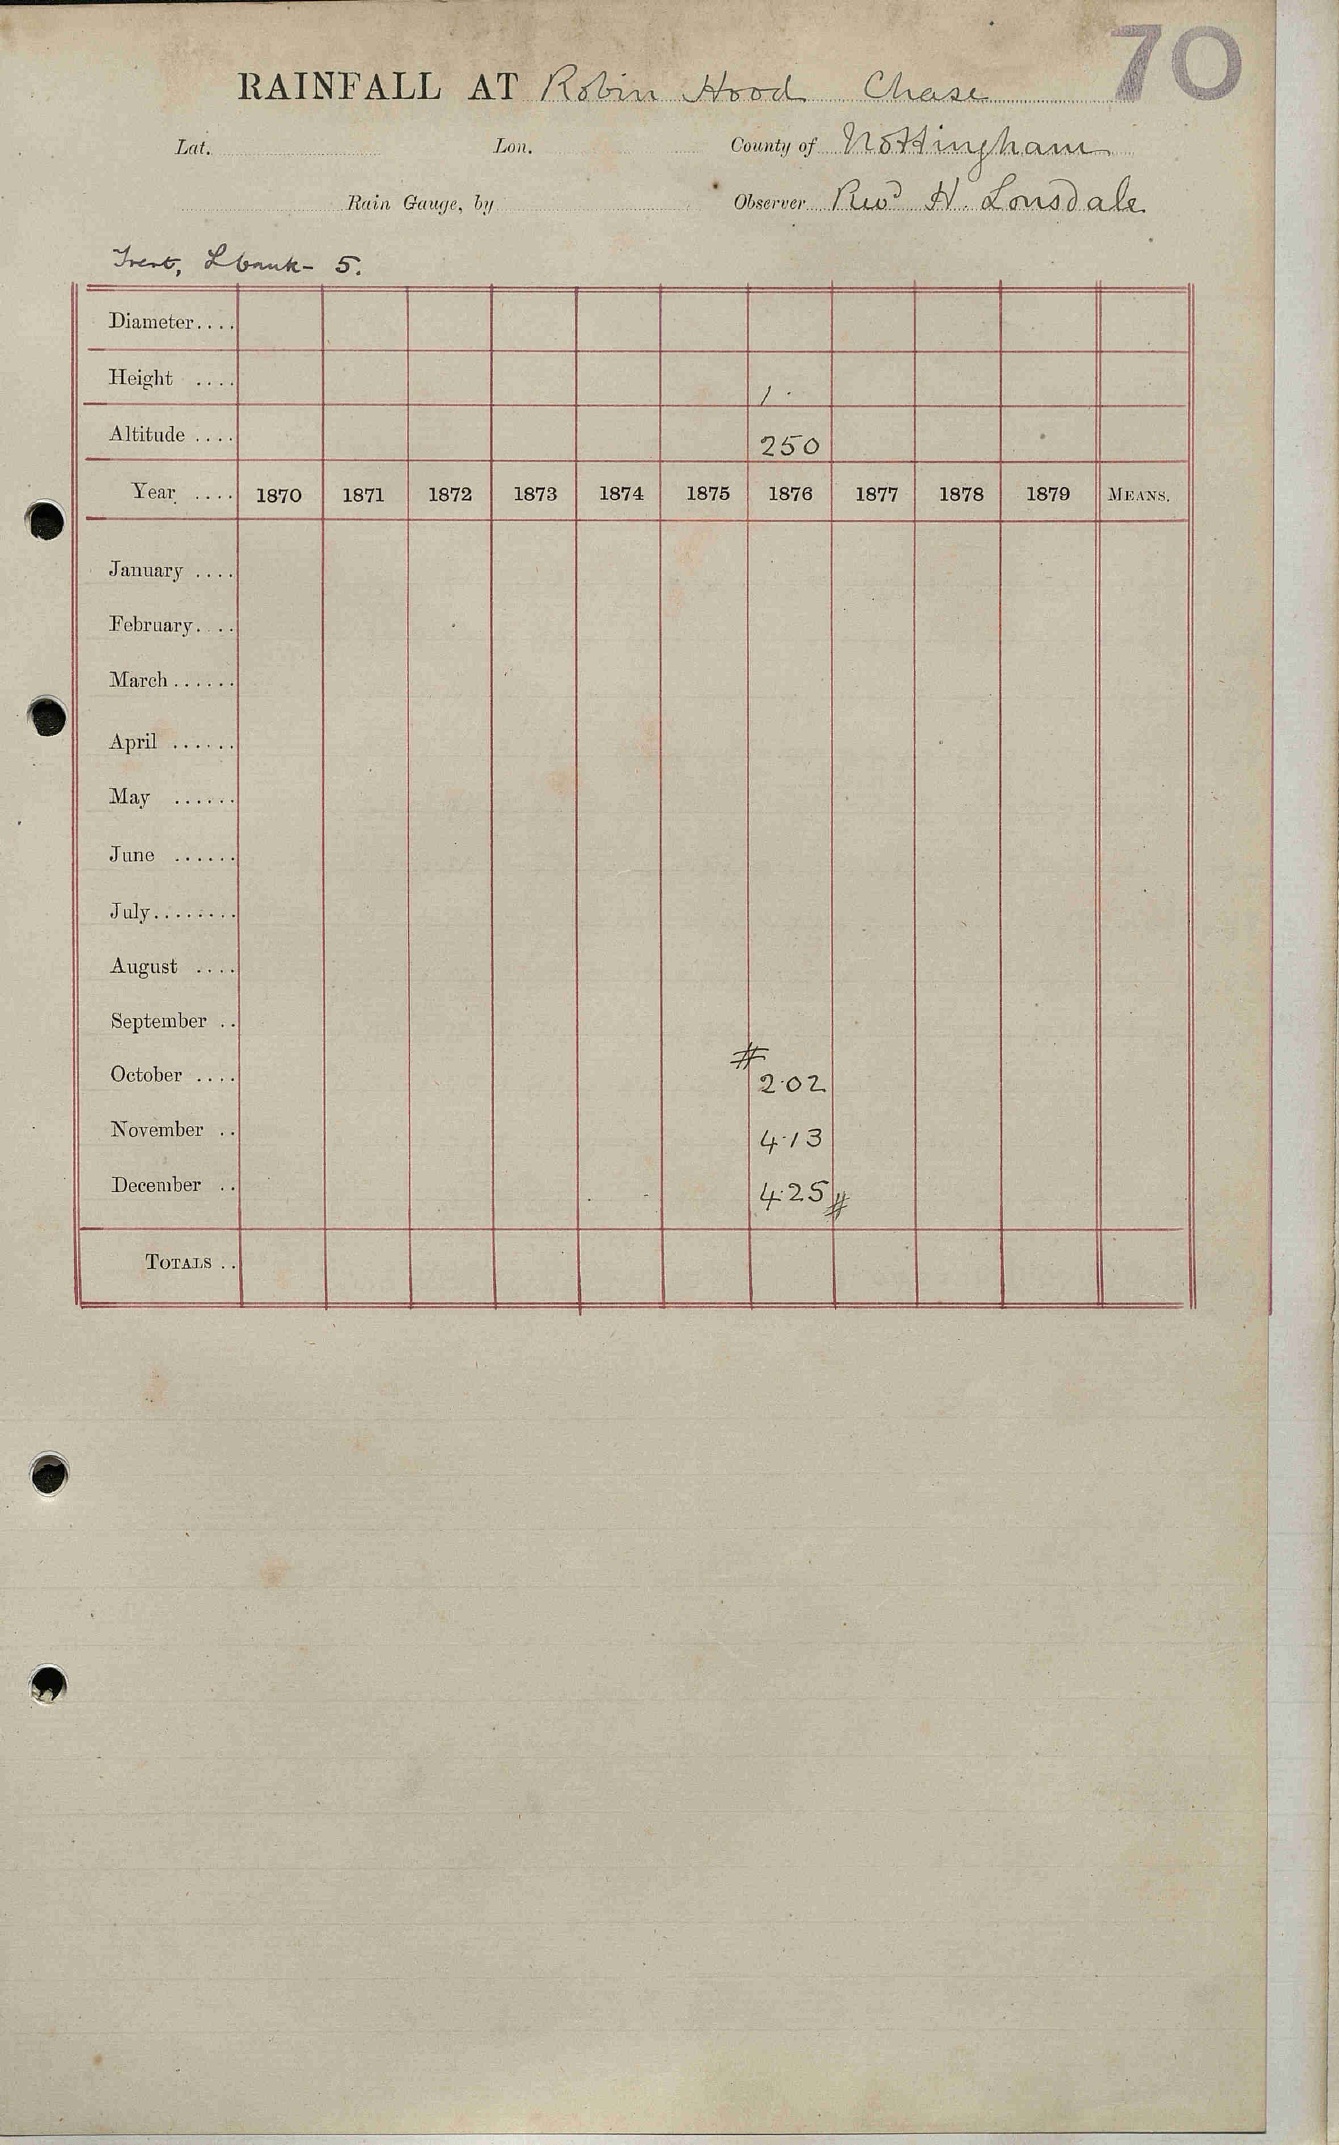 70
RAINFALL AT Robin Hood Chase
Lat. Lon. County of Nottingham
Rain Gauge, by Observer Revd H. Lonsdale
Trent, L bank - 5.
Diameter....
Height .... 1.
Altitude .... 250
Year .... 1870 1871 1872 1873 1874 1875 1876 1877 1878 1879 MEANS.
January ....
February....
March......
April ......
May ......
June ......
July........
August ....
September ..
#
October .... 2.02
November .. 4.13
December .. 4.25 #
TOTALS ..